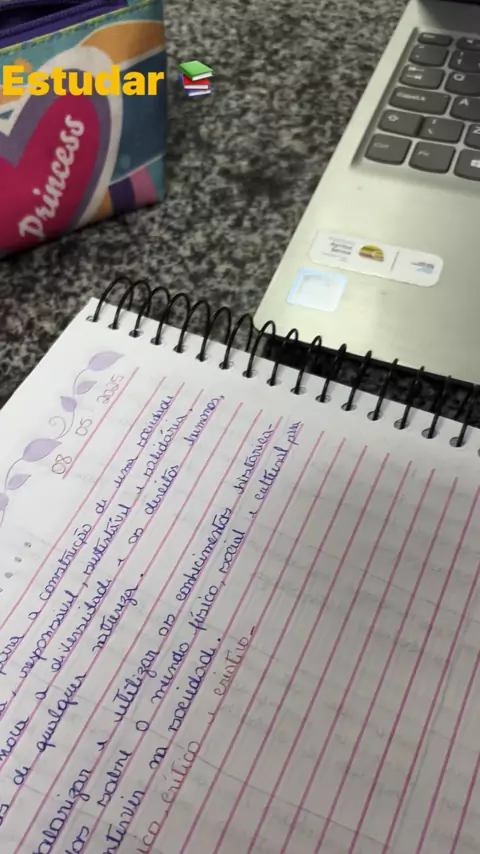 Estudar 📚
Princess
08 05 2025
para a construção de uma sociedade
responsável, sustentável e solidária,
a diversidade e os direitos humanos,
de qualquer natureza.
valorizar e utilizar os conhecimentos históricos-
sobre o mundo físico, social e cultural para
intervir na sociedade.
crítico e criativo.